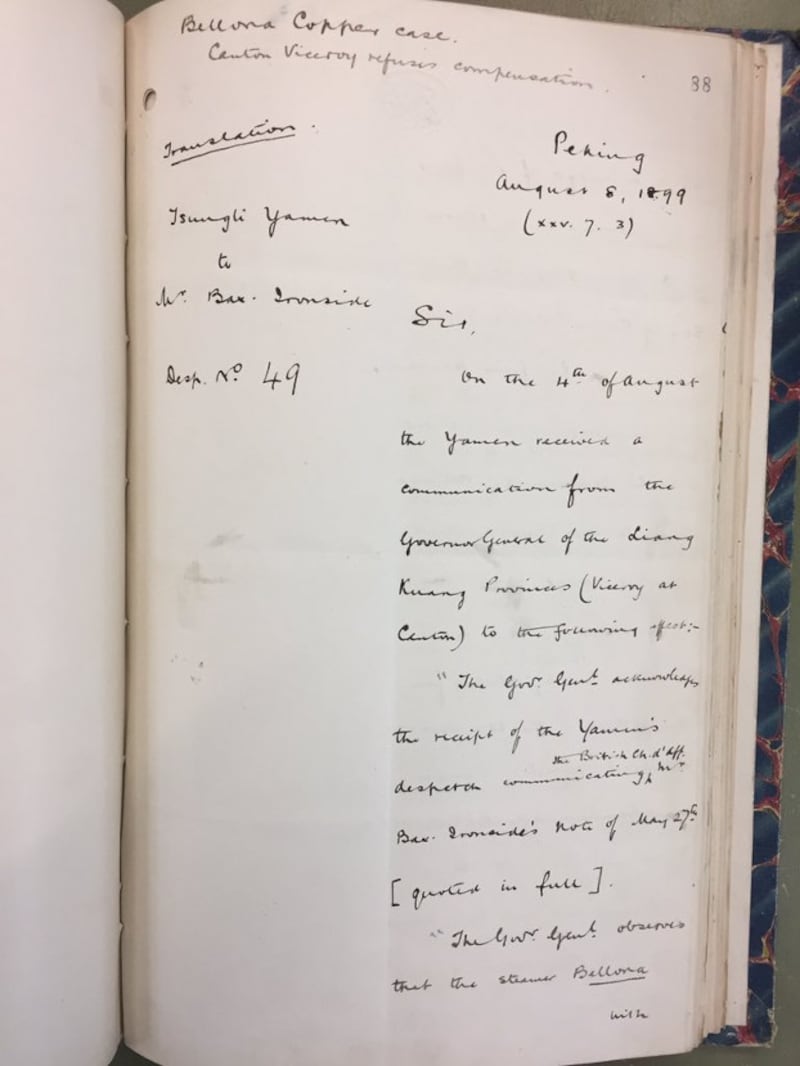 Bellona Copper case.
Canton Viceroy refuses compensation.
88
Translation.
Peking
August 8, 1899
(xxv. 7. 3)
Tsungli Yamen
to
Mr. Bax-Ironside
Desp. No 49
Sir,
On the 4th of August
the Yamen received a
communication from the
Governor General of the Liang
Kuang Provinces (Viceroy at
Canton) to the following effect:-
"The Govr. Genl. acknowledges
the receipt of the Yamen's
the British Ch. d'Aff.
despatch communicating Mr
Bax-Ironside's Note of May 27th
[quoted in full].
"The Govr. Genl. observes
that the steamer Bellona
with